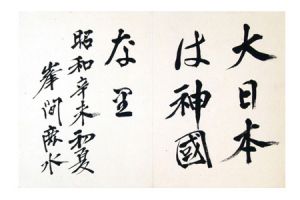 大日本
は神國
な里
昭和辛未初夏
峯間鹿水